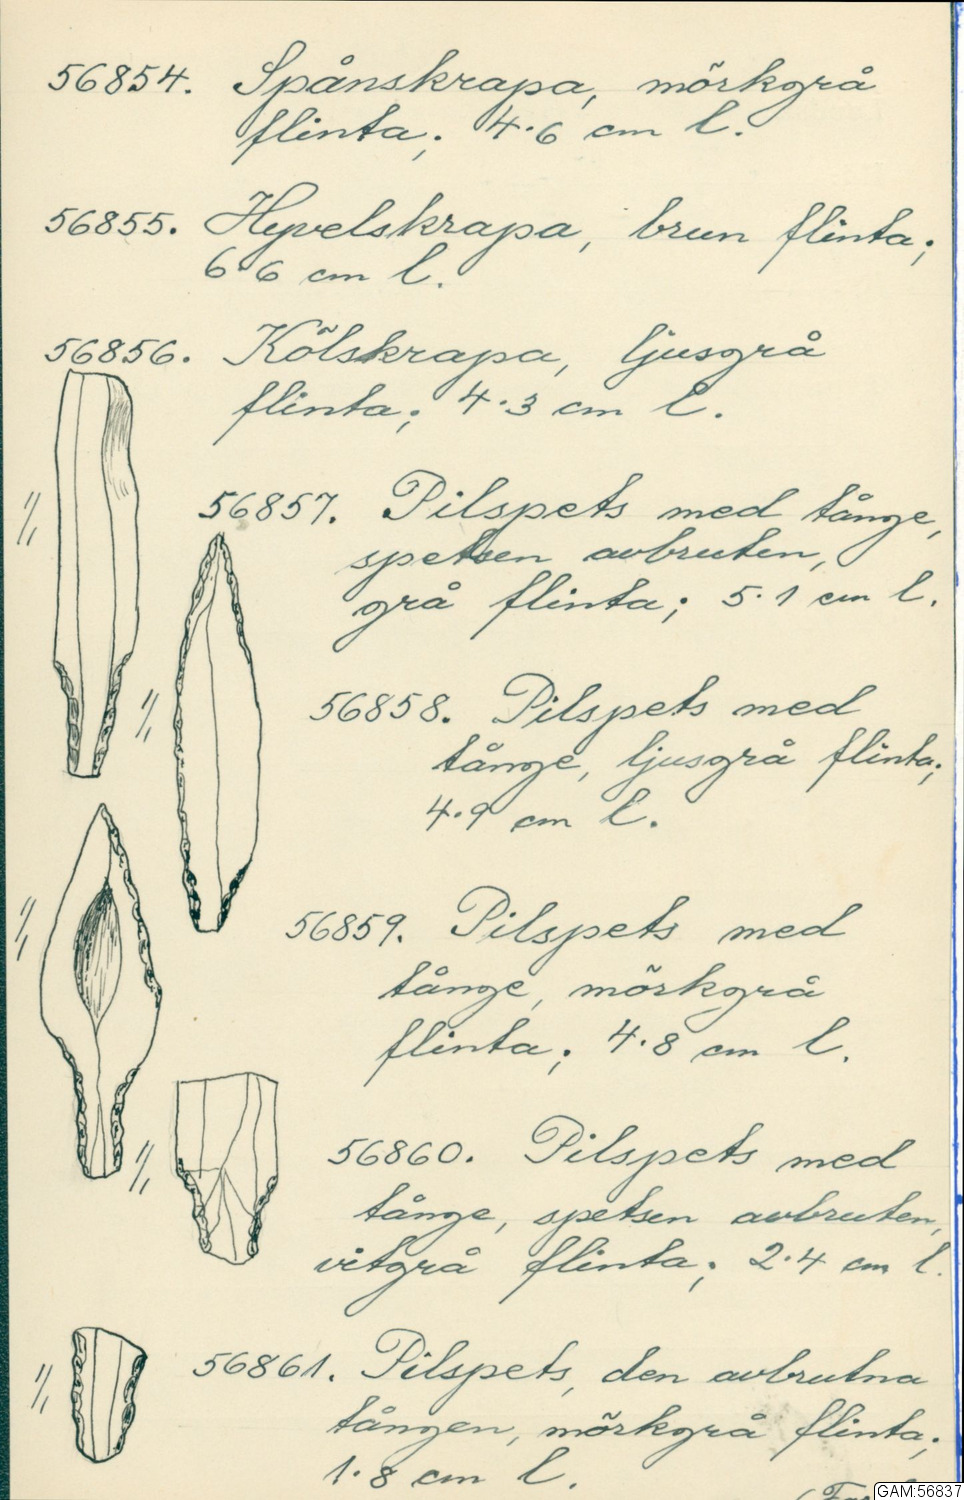 56854. Spånskrapa, mörkgrå
flinta; 4.6 cm l.
56855. Hyvelskrapa, brun flinta;
6.6 cm l.
56856. Kölskrapa, ljusgrå
flinta; 4.3 cm l.
1/1
56857. Pilspets med tånge,
spetsen avbruten,
grå flinta; 5.1 cm l.
1/1
56858. Pilspets med
tånge, ljusgrå flinta;
4.9 cm l.
1/1
56859. Pilspets med
tånge, mörkgrå
flinta; 4.8 cm l.
1/1
56860. Pilspets med
tånge, spetsen avbruten,
vitgrå flinta; 2.4 cm l.
1/1
56861. Pilspets, den avbrutna
tången, mörkgrå flinta;
1.8 cm l.
GAM:56837